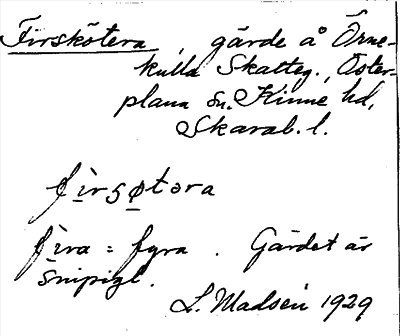 Firskötera, gärde å Örne-
kulla Skatteg., Öster-
plana Sn. Kinne hd,
Skarab. l.
fìrsøtəra
fìra = fyra. Gärdet är
snipigt.
L. Madsén 1929